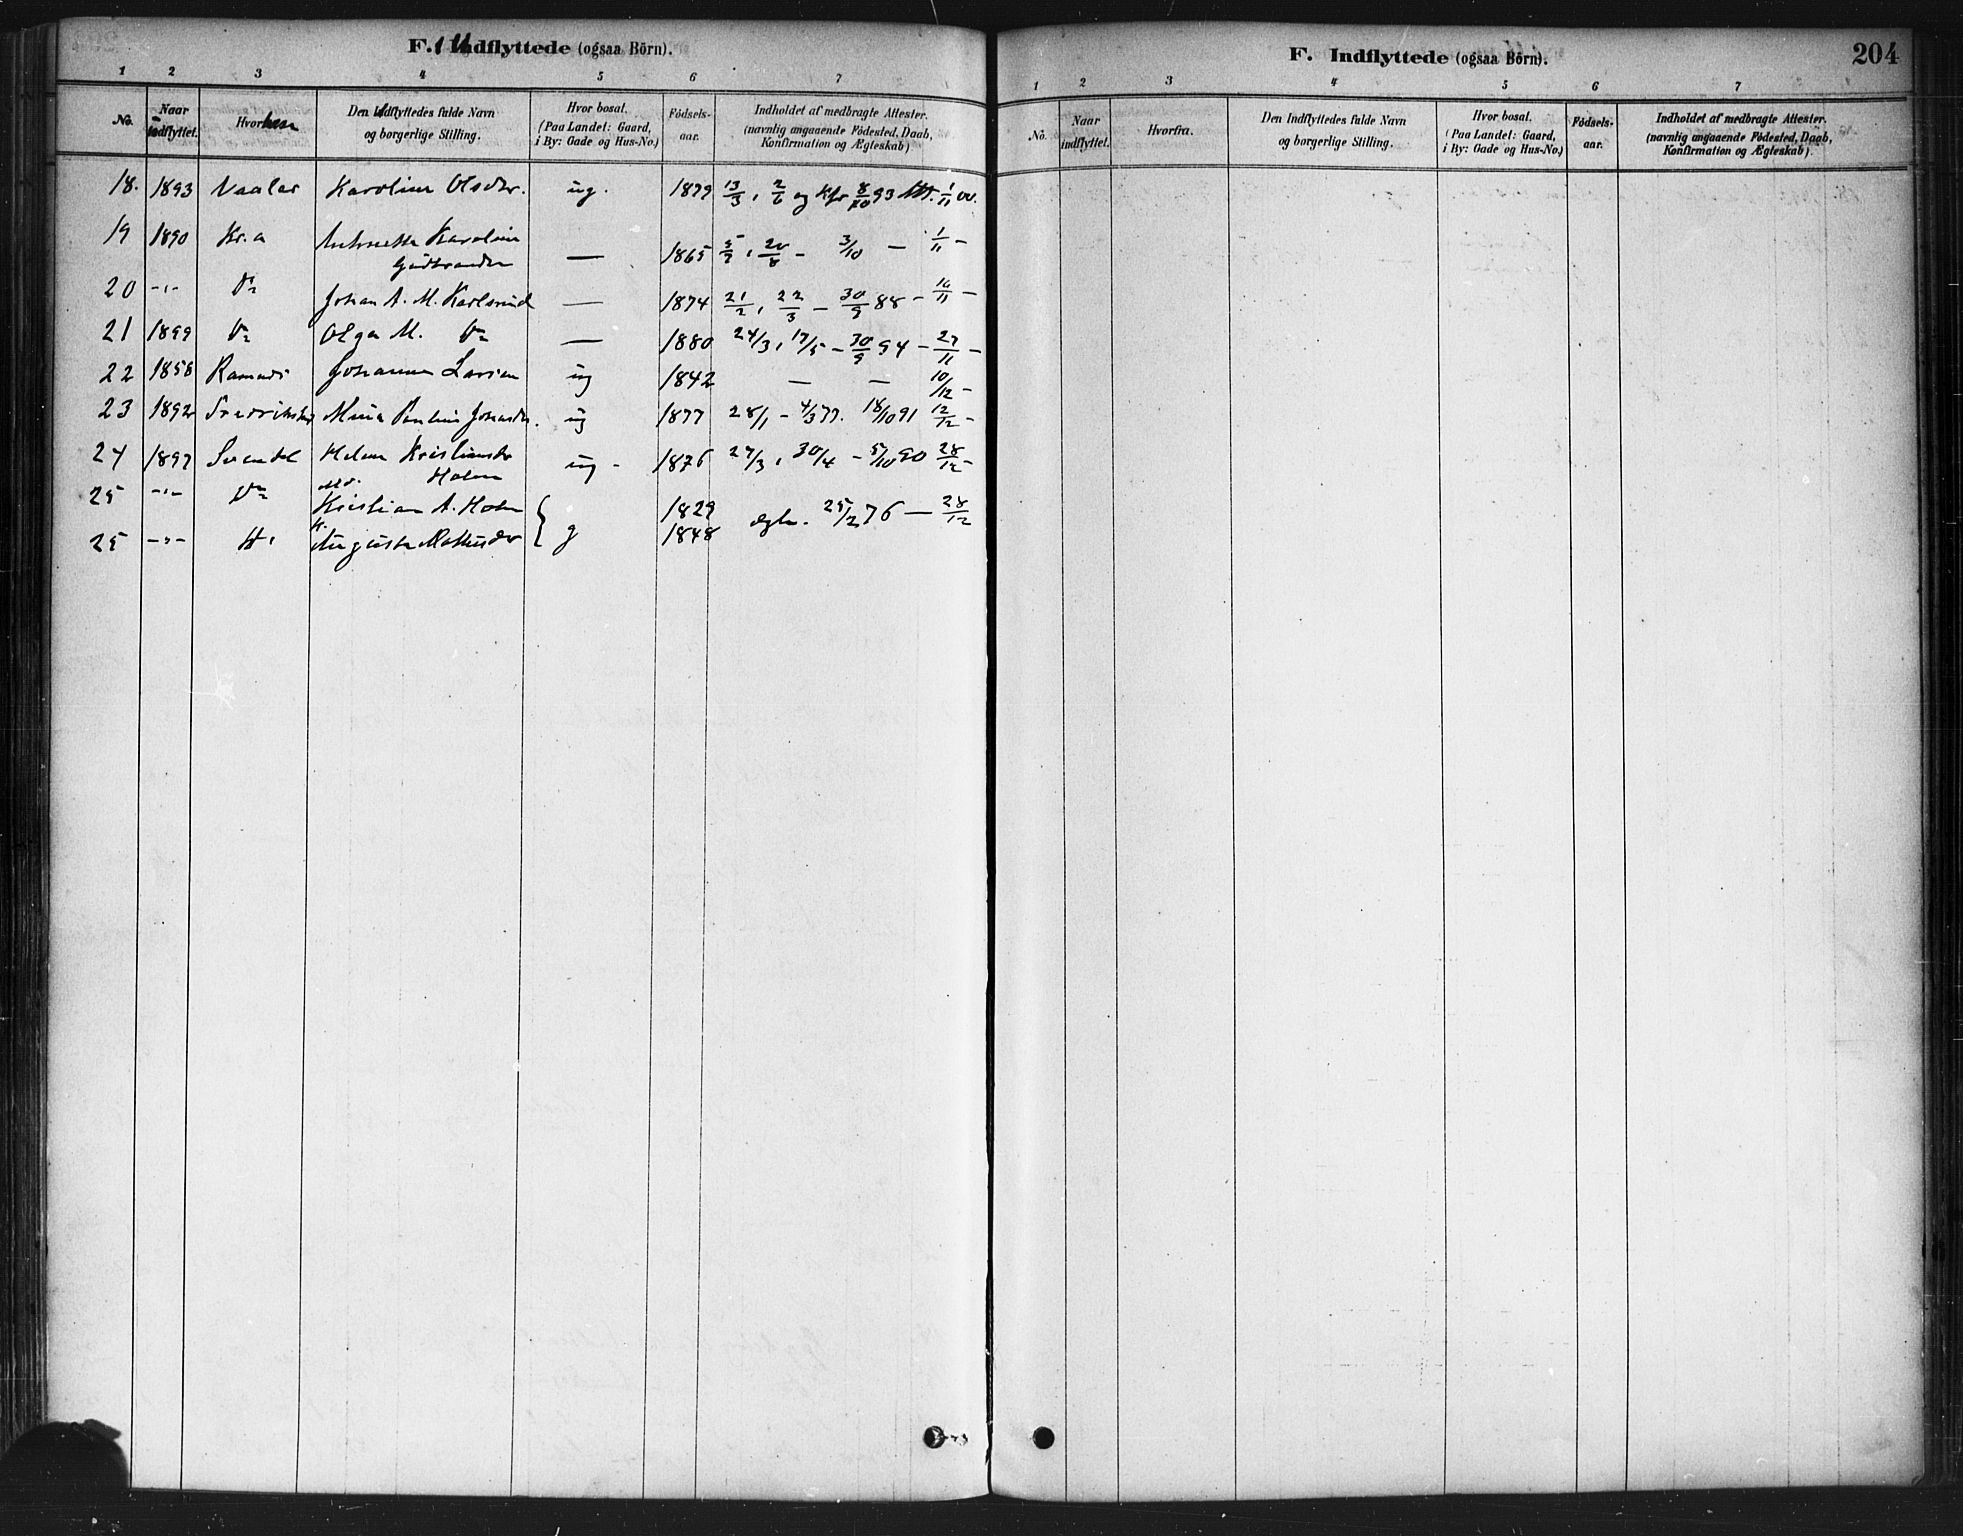 F. Indflyttede (ogsaa Börn).
1 2 3 4 5 6 7
No. Naar indflyttet. Hvorhen Den Indflyttedes fulde Navn og borgerlige Stilling. Hvor bosat. (Paa Landet: Gaard, i By: Gade og Hus-No.) Födsels-aar. Indholdet af medbragte Attester. (navnlig angaaende Födested, Daab, Konfirmation og Ægteskab)
18. 1893 Vaaler Karoline Olsdtr. ug. 1879 13/3, 2/6 og Kfr 8/10 93 Att. 1/11 00.
19 1890 Kr.a Karoline
Gudbrandsn — 1865 5/2, 20/8 - 3/10 — 1/11 -
20 -"- Do Johan A. M. Karlsrud — 1874 21/2, 22/3 — 30/9 88 - 16/11 -
21 1899 Do Olga M. Do — 1880 24/3, 17/5 - 30/9 94 - 27/11 -
22 1858 Johanne Larsen ug 1842 — — 10/12 -
23 1892 Fredrikstad ug 1877 28/1 - 4/3 77. 18/10 91 12/12 -
24 1897 Helene Kristiansdr ug - 1876 27/3, 30/4 - 5/10 90 28/12 -
Holen
25 -"- Do Kristian A. Holen 1829 ægtv. 25/2 76 — 28/12
25 -"- Auguste g 1848
F. Indflyttede (ogsaa Börn). 204
1 2 3 4 5 6 7
No. Naar indflyttet. Hvorfra. Den Indflyttedes fulde Navn og borgerlige Stilling. Hvor bosat. (Paa Landet: Gaard, i By: Gade og Hus-No.) Födsels-aar. Indholdet af medbragte Attester. (navnlig angaaende Födested, Daab, Konfirmation og Ægteskab).